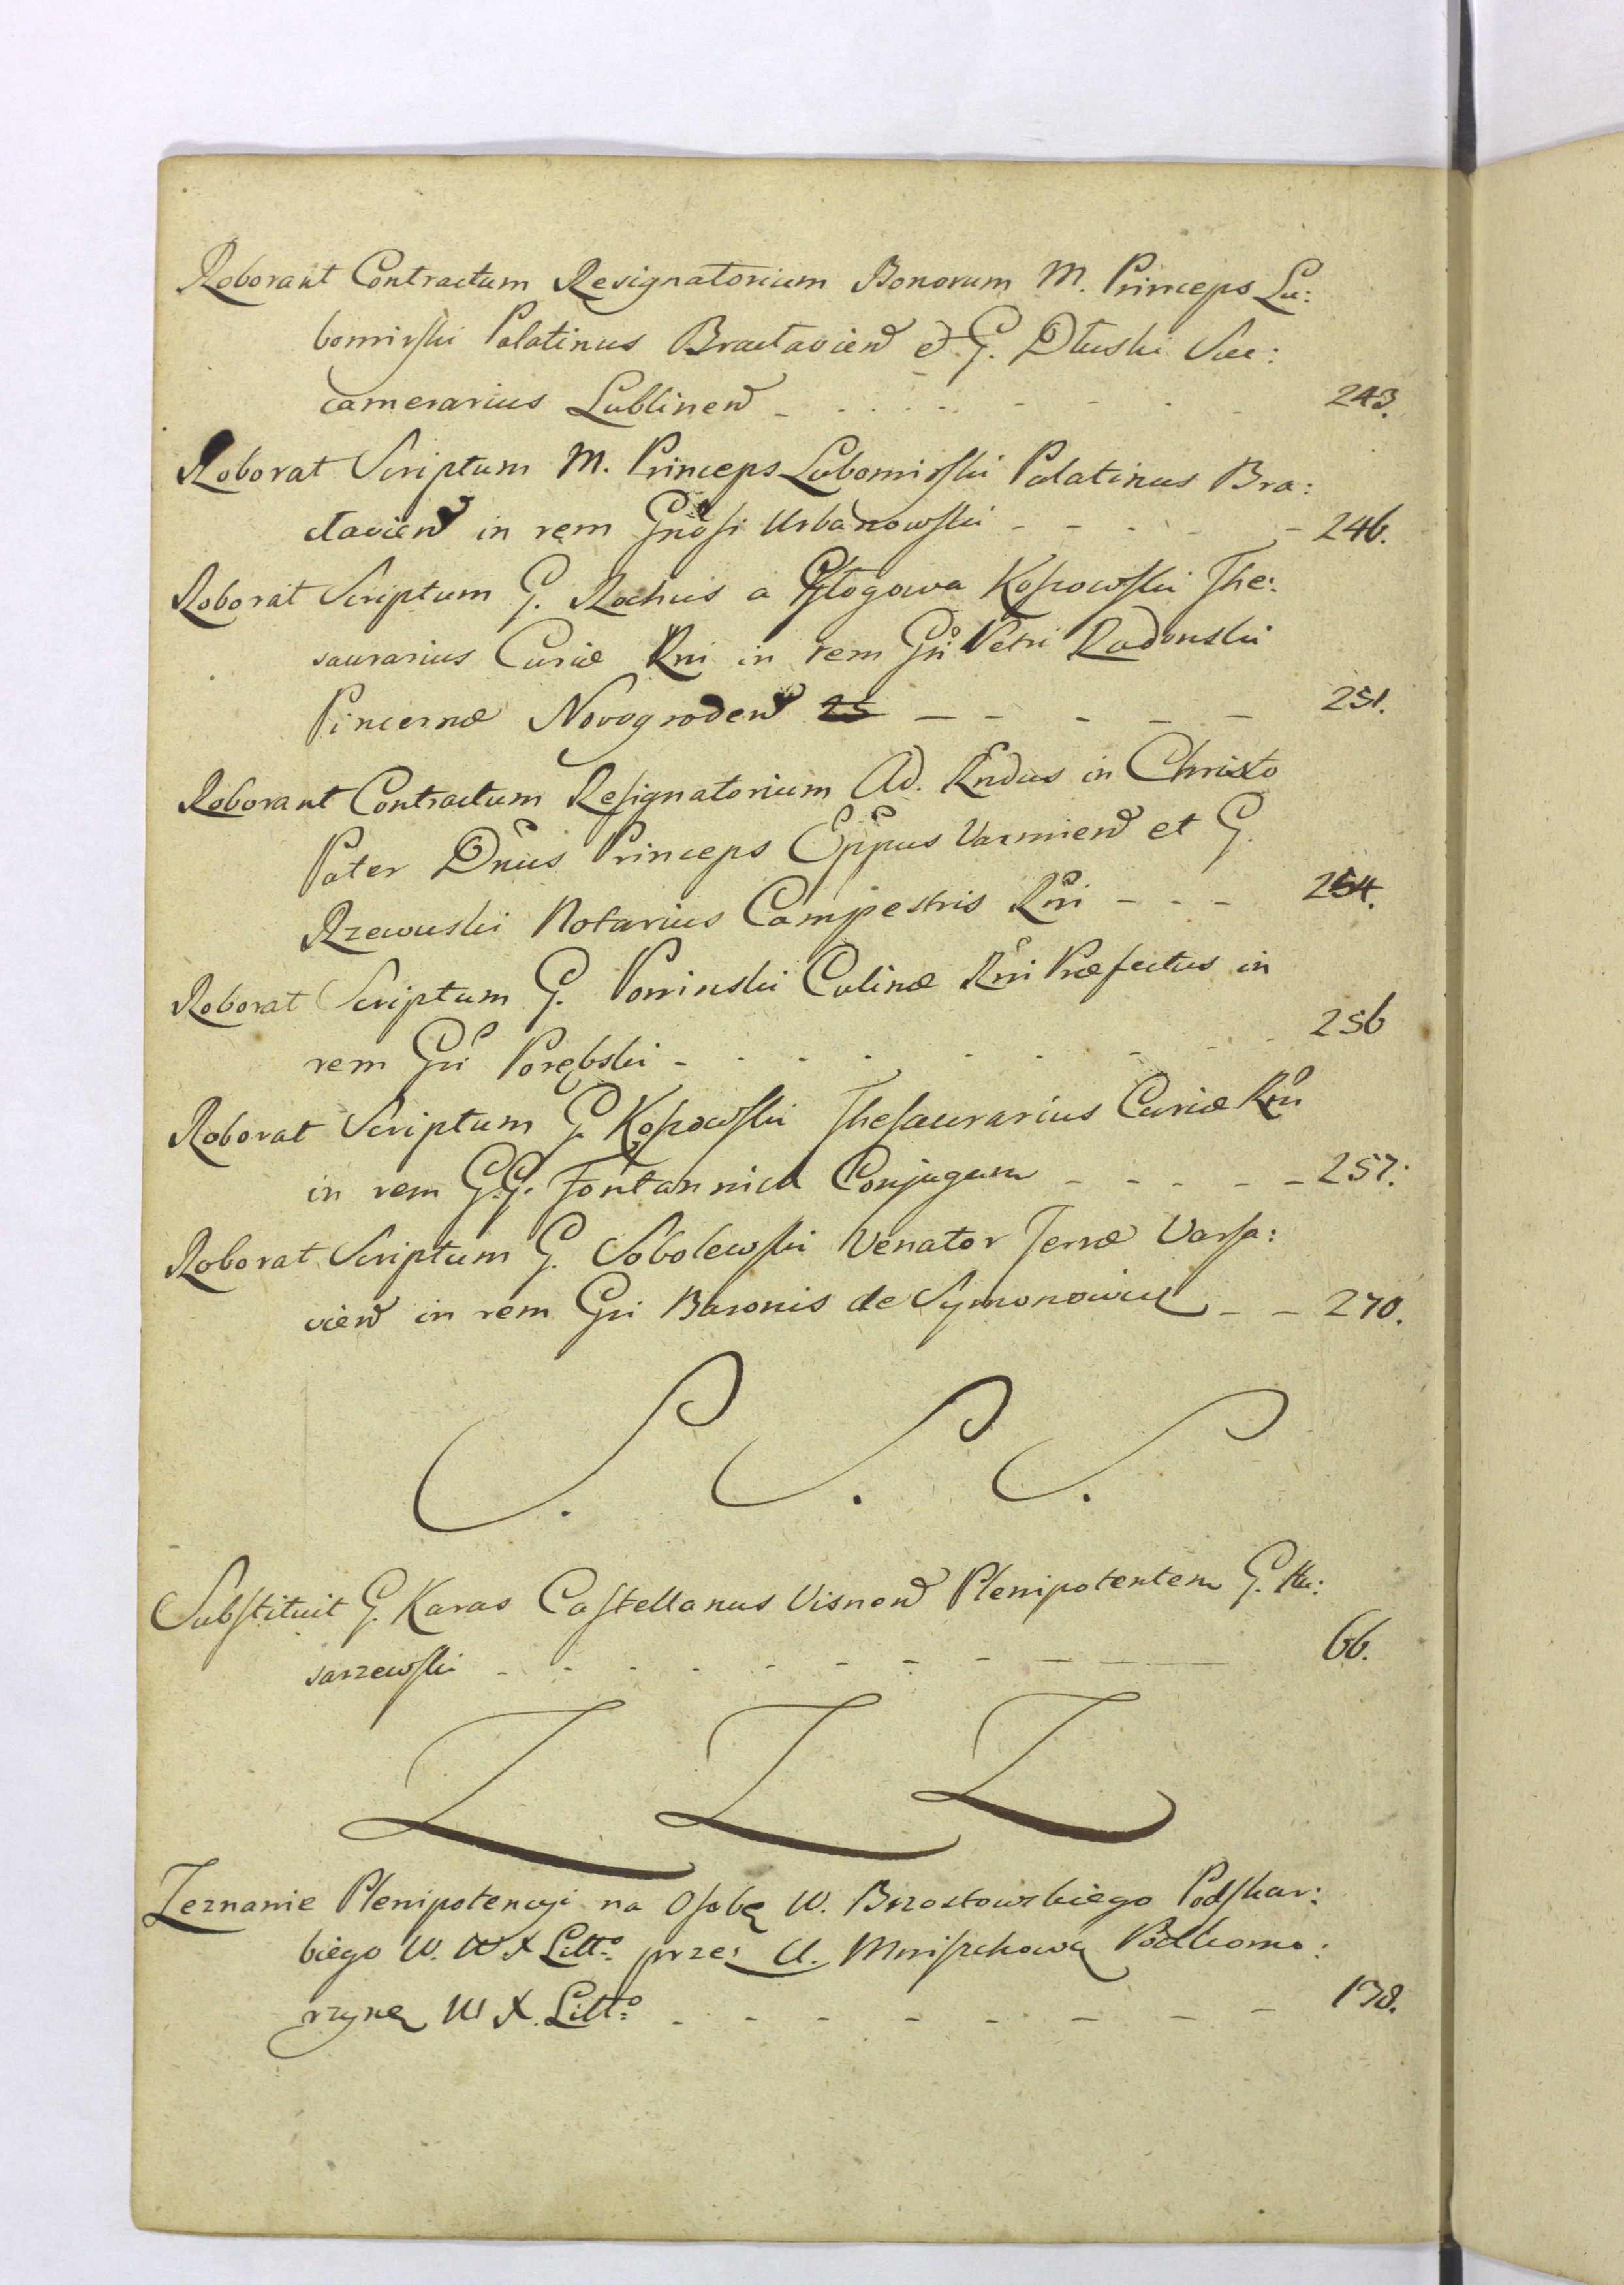 Roborant Contractum Resignatorium Bonorum M. Princeps Lu:
bomirski Palatinus Bractavien et G. Dłuski Suc:
camerarius Lublinen - - - - - - - 243.
Roborat Scriptum M. Princeps Lubomirski Palatinus Bra:
ctavien in rem Gnosi Urbanowski - - - - - 246.
Roborat Scriptum G. Rochus a Głogowa Kossowski The:
saurarius Curiæ Rni in rem Gni Petri Radonski
Pincernæ Novogroden 25 - - - - - 251.
Roborant Contractum Resignatorium Ad. Rndus in Christo
Pater Dnus Princeps Eppus Varmien et G.
Rzewuski Notarius Campestris Rni - - - 254.
Roborat Scriptum G. Poninski Culinæ Rni Præfectus in
rem Gni Porębski - - - - - - - - 256
Roborat Scriptum G. Kossowski Thesaurarius Curiæ Rni
in rem G.G. Fontannich Conjugum - - - - - 257.
Roborat Scriptum G. Sobolewski Venator Terræ Varsa:
vien in rem Gni Baronis de Symonowicz - - 270.
S. S. S.
Substituit G. Karas Castellanus Visnen Plenipotentem G.
sarzewski - - - - - - - - - 66.
Z Z Z
Zeznanie Plenipotencyi na Osobę W. Brzostowskiego Podskar:
biego W. W X Litto przez U. Mniszchową Podkomo:
rzynę W X. Litto - - - - - - - 178.